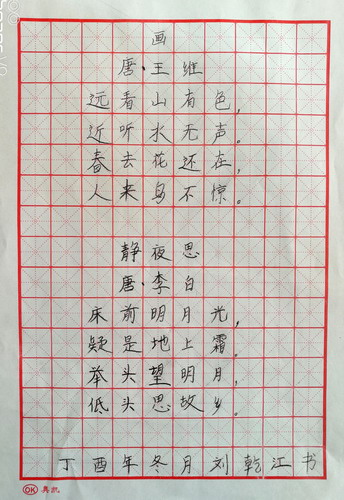 画
唐·王维
远看山有色，
近听水无声。
春去花还在，
人来鸟不惊。
静夜思
唐·李白
床前明月光，
疑是地上霜。
举头望明月，
低头思故乡。
丁酉年冬月刘乾江书
OK